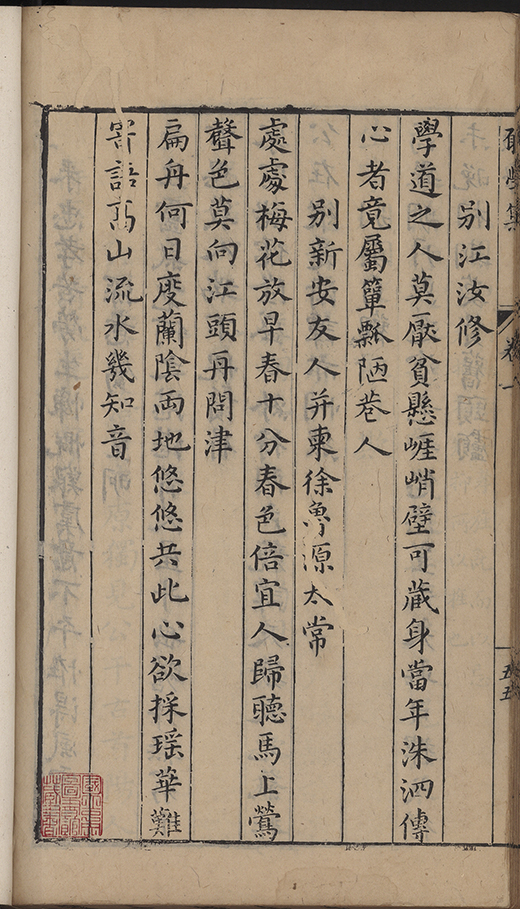 學集 卷一
別江汝修
學道之人莫厭貧懸崕峭壁可藏身當年洙泗傳
心者竟屬簞瓢陋巷人
別新安友人并柬徐魯源太常
處處梅花放早春十分春色倍宜人歸聽馬上鶯
聲色莫向江頭再問津
扁舟何日度蘭陰兩地悠悠共此心欲採瑶華難
寄語高山流水幾知音